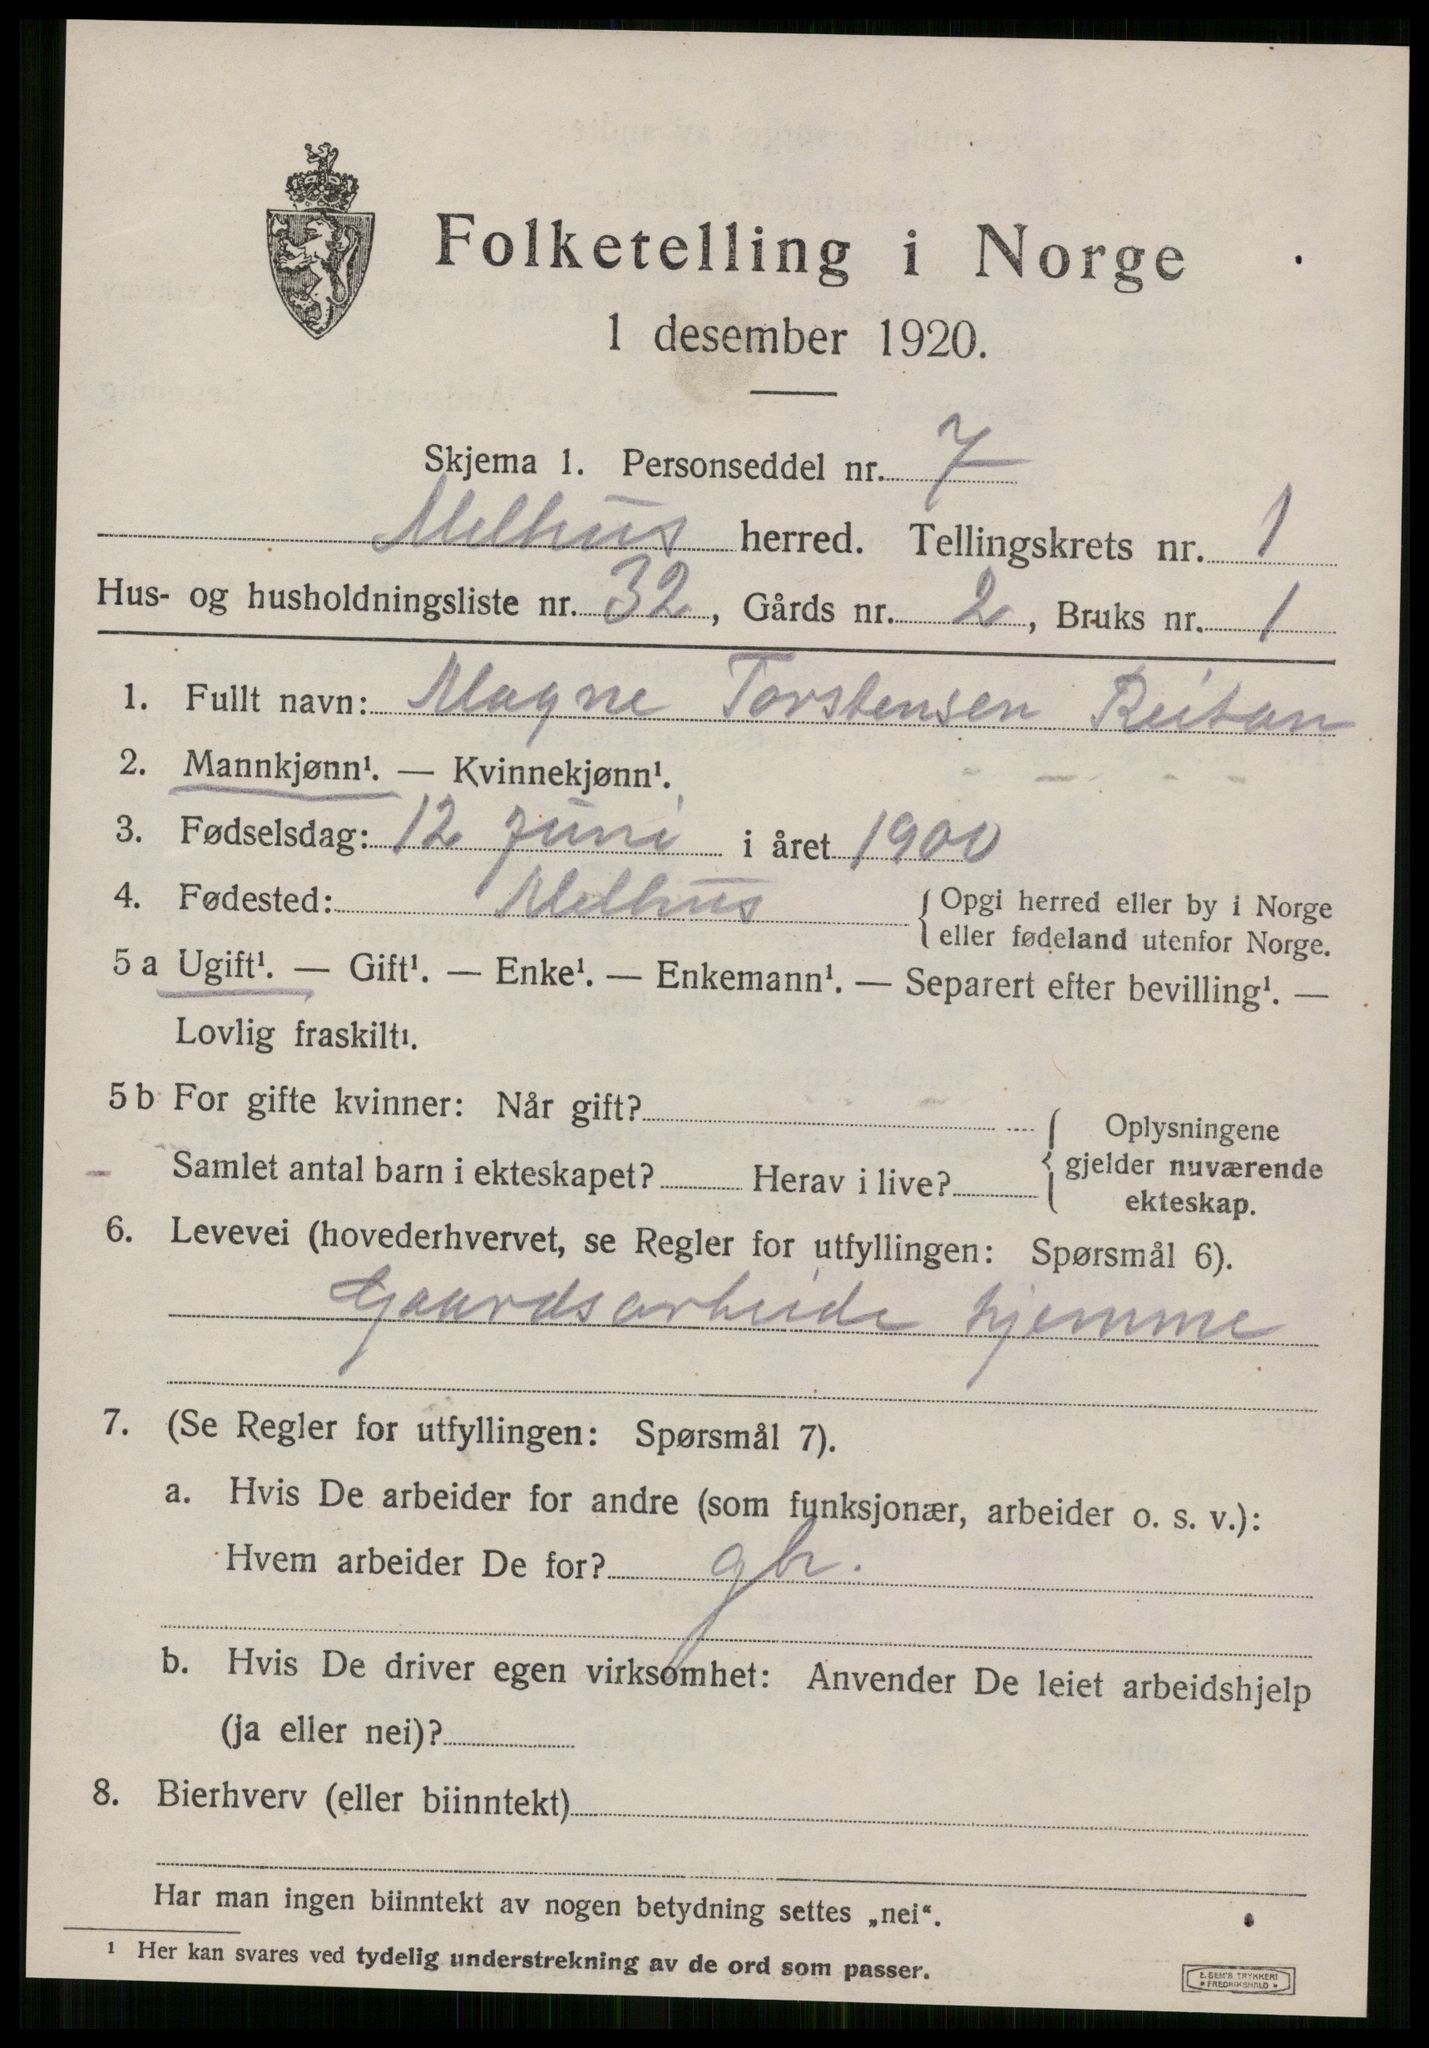 Folketelling i Norge
1 desember 1920.
Skjema 1. Personseddel nr. 7
Melhus herred. Tellingskrets nr. 1
Hus- og husholdningsliste nr. 32, Gårds nr. 2, Bruks nr. 1
1. Fullt navn: Magne Torstensen Reitan
2. Mannkjønn¹. — Kvinnekjønn¹.
3. Fødselsdag: 12 juni i året 1900
4. Fødested: Melhus { Opgi herred eller by i Norge
eller fødeland utenfor Norge.
5 a Ugift¹. — Gift¹. — Enke¹. — Enkemann¹. — Separert efter bevilling¹. —
Lovlig fraskilt¹.
5 b For gifte kvinner: Når gift?
Samlet antal barn i ekteskapet? Herav i live?
{ Oplysningene
gjelder nuværende
ekteskap.
6. Levevei (hovederhvervet, se Regler for utfyllingen: Spørsmål 6).
Gaardsarbeide hjemme
7. (Se Regler for utfyllingen: Spørsmål 7).
a. Hvis De arbeider for andre (som funksjonær, arbeider o. s. v.):
Hvem arbeider De for? gbr.
b. Hvis De driver egen virksomhet: Anvender De leiet arbeidshjelp
(ja eller nei)?
8. Bierhverv (eller biinntekt)
Har man ingen biinntekt av nogen betydning settes „nei“.
¹ Her kan svares ved tydelig understrekning av de ord som passer.
E. SEM'S TRYKKERI
FREDRIKSHALD